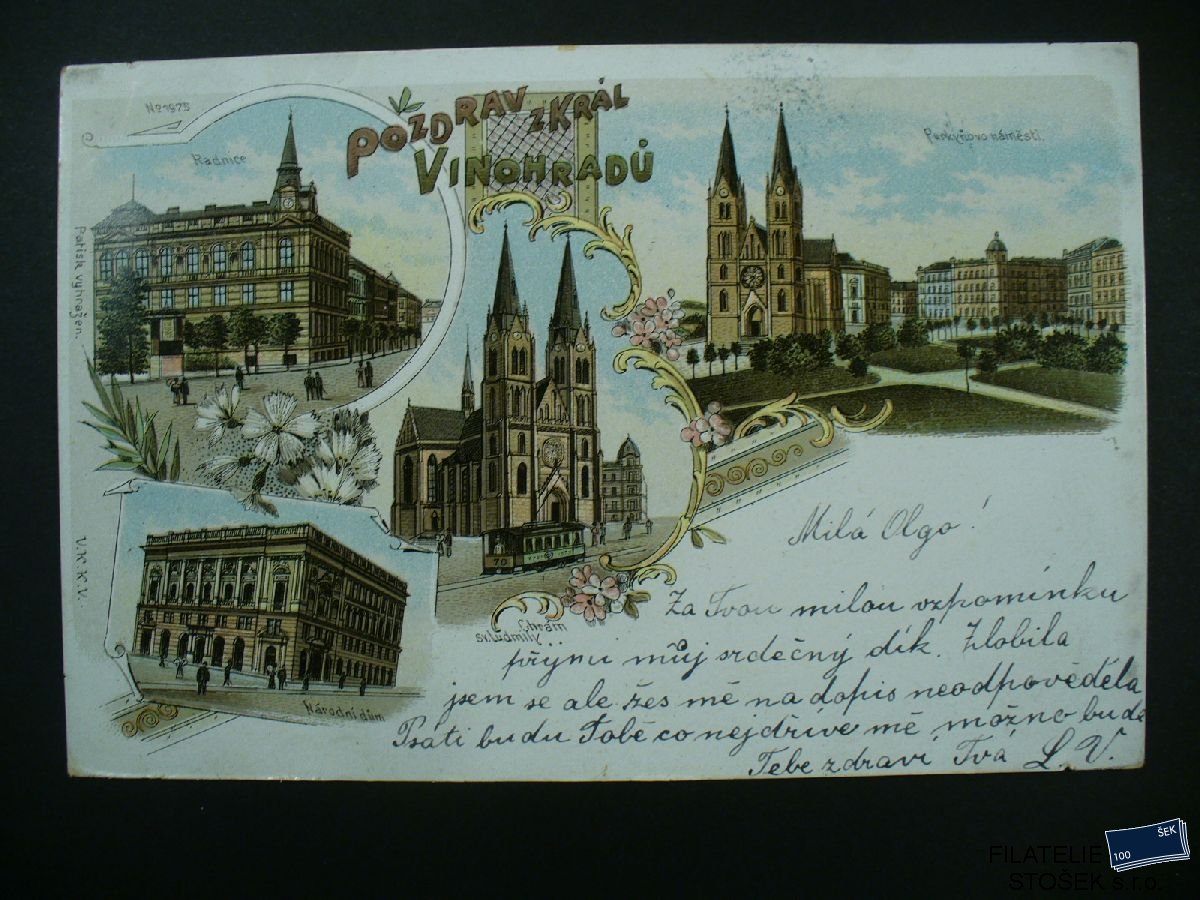 No 1975
POZDRAV Z KRÁL
VINOHRADŮ
Radnice
Purkyňovo náměstí.
Potisk vyhražen.
V. K. K. V.
70
Chrám
sv. Ludmily
Národní dům
Milá Olgo!
Za Tvou milou vzpomínku
přijmu můj srdečný dík. Zlobila
jsem se ale žes mě na dopis neodpověděla
Psáti budu Tobě co nejdříve mě možno bude
Tebe zdraví Tvá L. V.
100 ŠEK
FILATELIE
STOŠEK s.r.o.